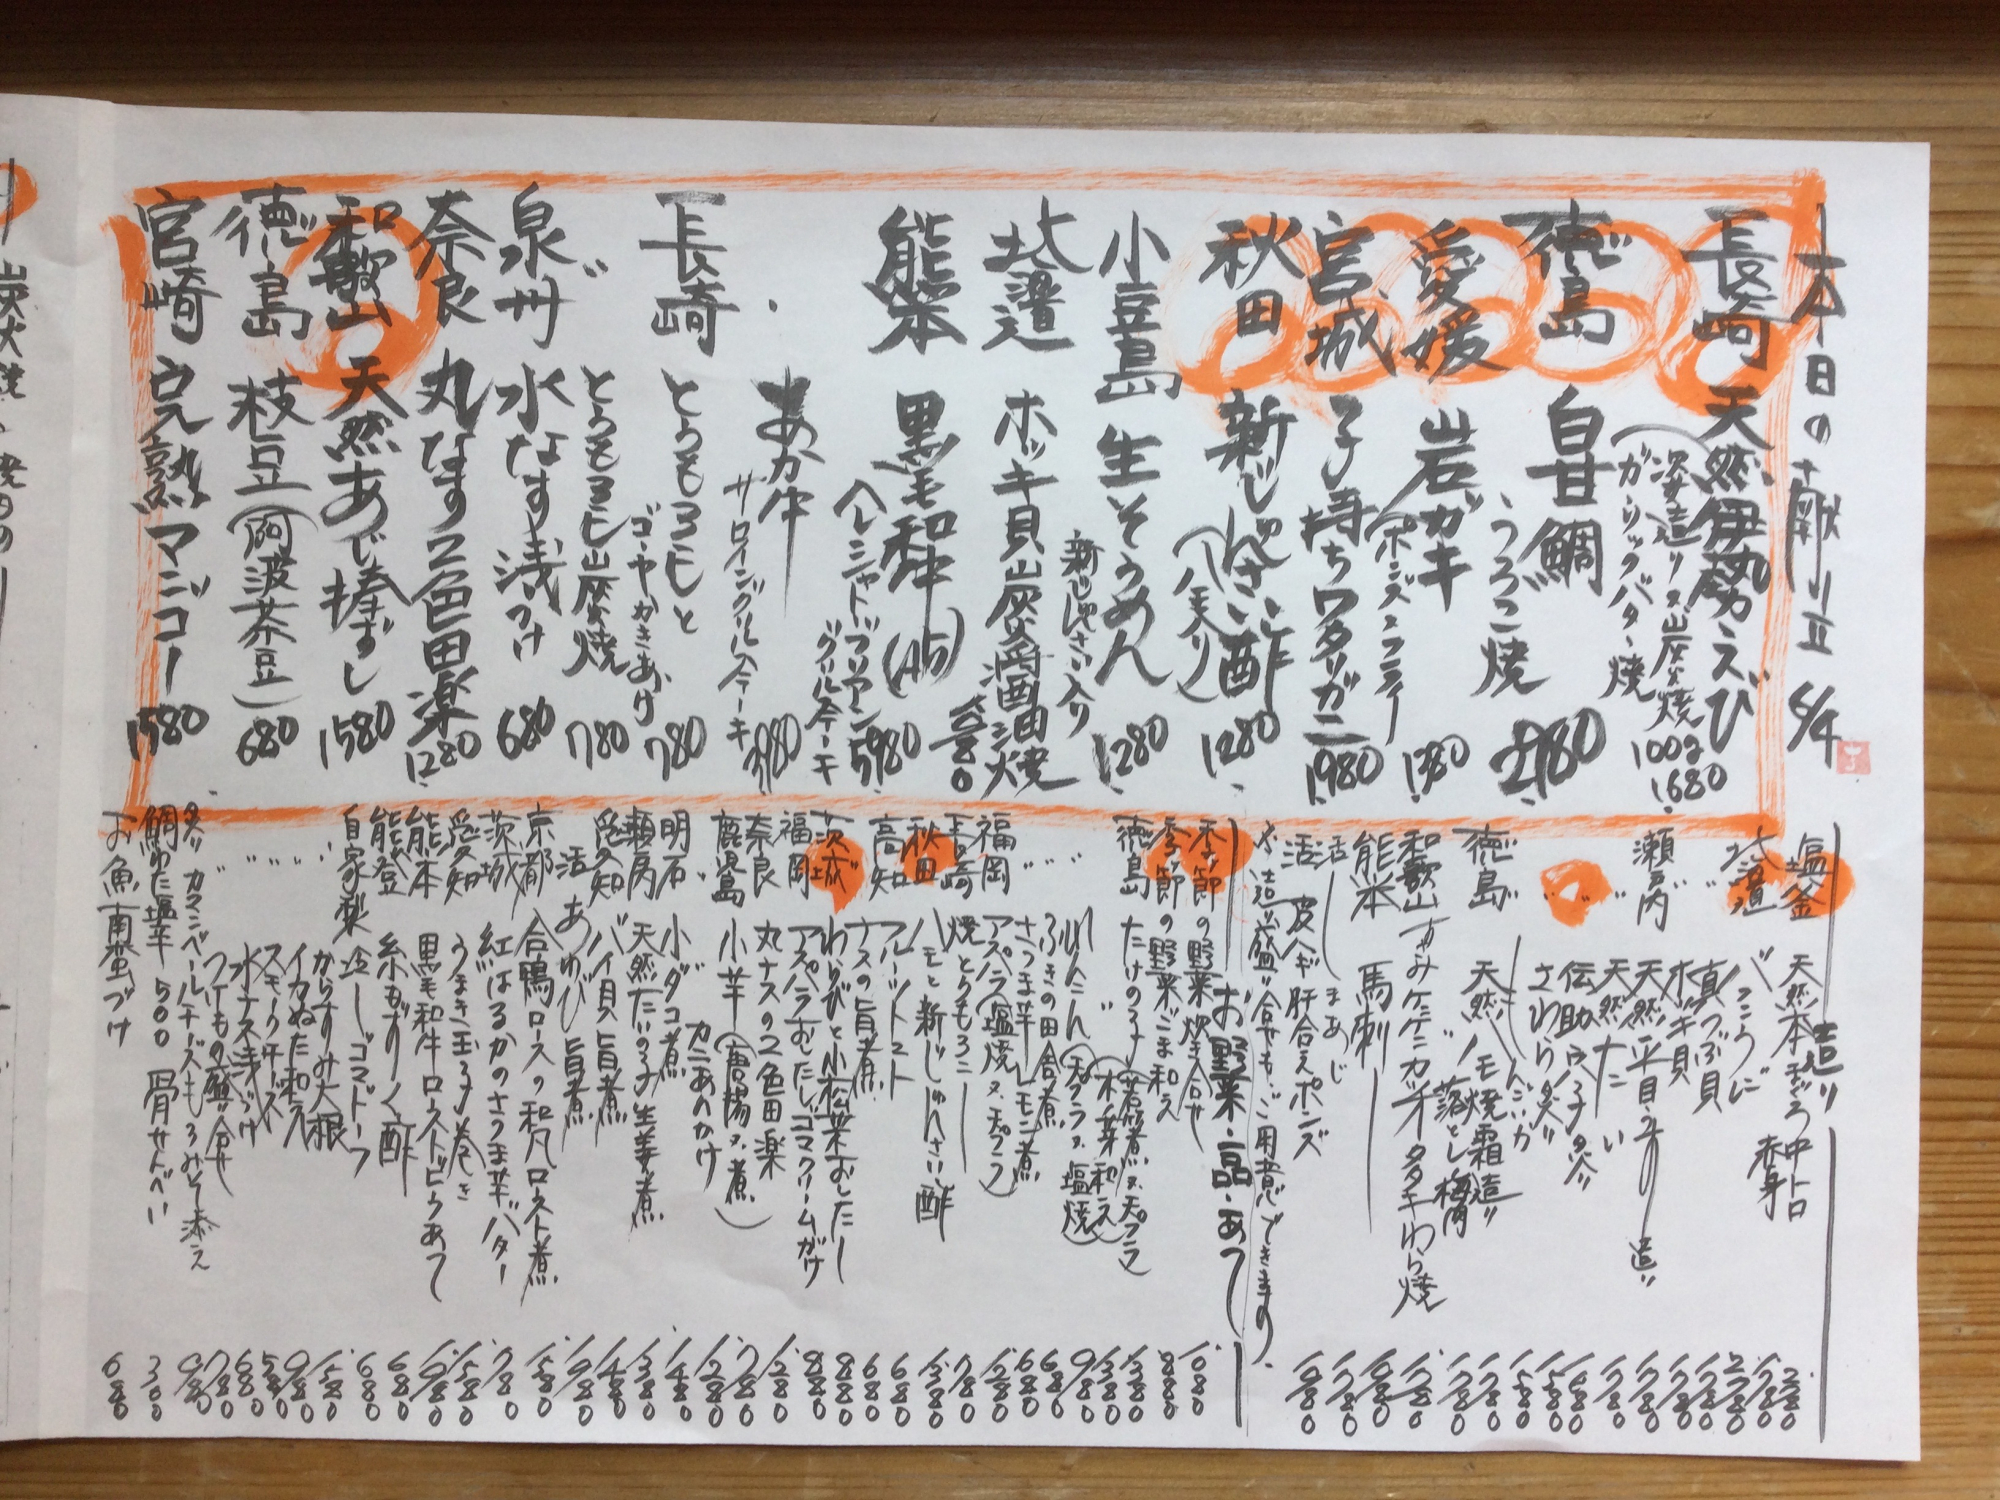 本日の献立 6/4
長崎 天然伊勢えび 100g 1680
(姿造り又炭火焼
ガーリックバター焼
徳島 白甘鯛
うろこ焼 2980
愛媛 岩ガキ 1380
(ポンズ又フライ
宮城 子持ちワタリガニ 1980
秋田 新じゅんさい酢 1280
小豆島 生そうめん 1280
新じゅんさい入り
北海道 ホッキ貝炭火醤油焼
熊本 黒毛和牛(A5) 5980
ヘレシャトーブリアン
グリルステーキ
あか牛 3980
サーロイングリルステーキ
長崎 とうもろこしと
ゴーヤかきあげ 780
とうもろこし炭火焼 780
泉州 水なす浅づけ 680
奈良 丸なす2色田楽 1280
和歌山 天然あじ棒ずし 1580
徳島 枝豆(阿波茶豆) 680
宮崎 完熟マンゴー 1580
造り
塩釜 天然本まぐろ 中トロ 2780
赤身 1780
北海道 バフンうに 2780
〃 真つぶ貝 1780
ホッキ貝 1780
瀬戸内 天然平目 造り 1780
〃 天然たい 1780
〃 伝助穴子炙り 1680
さわら炙り 1580
徳島 天然ハモ焼霜造り 1780
〃 落とし梅肉 1780
和歌山 すみケンケンカツオタタキわら焼 1780
熊本 馬刺 1980
活 しまあじ 1780
活 皮ハギ肝合えポンズ 1980
お造り盛り合せも、ご用意できます。
お野菜・一品・あて
季節の野菜炊き合せ 1080
季節の野菜ごま和え 880
徳島 たけのこ(若筍煮又天プラ 1380
〃 (木の芽和え) 1380
(天プラ又塩焼)
〃 ふきの田舎煮 680
〃 さつま芋レモン煮 680
福岡 アスパラ(塩焼又天プラ) 1280
長崎 焼とうもろこし 780
秋田 ハモと新じゅんさい酢 1380
高知 フルーツトマト 680
ナスの旨煮 680
茨城 わらびと小松菜おしたし 880
福岡 アスパラおしたしゴマクリームがけ 880
奈良 丸ナスの2色田楽 1280
鹿児島 小芋(唐揚又煮) 780
〃 カニあんかけ 1280
明石 小ダコ煮 1480
瀬戸内 天然たいの子生姜煮 1380
愛知 バイ貝旨煮 1480
活 あわび旨煮 1980
京都 合鴨ロースの和風ロースト煮 1580
茨城 紅はるかのさつま芋バター 780
愛知 うまき玉子巻き 1580
熊本 黒毛和牛ローストビーフあて 1980
能登 糸もずく酢 680
自家製 冷しゴマドーフ 680
〃 からすみ大根 1580
〃 イカぬた和え 980
〃 スモークチーズ 580
〃 水ナス浅づけ 680
〃 つけもの盛り合せ 780
炙りカマンベールチーズもろみそ添え 980
鯛わた塩辛 500 骨せんべい 300
お魚南蛮づけ 680